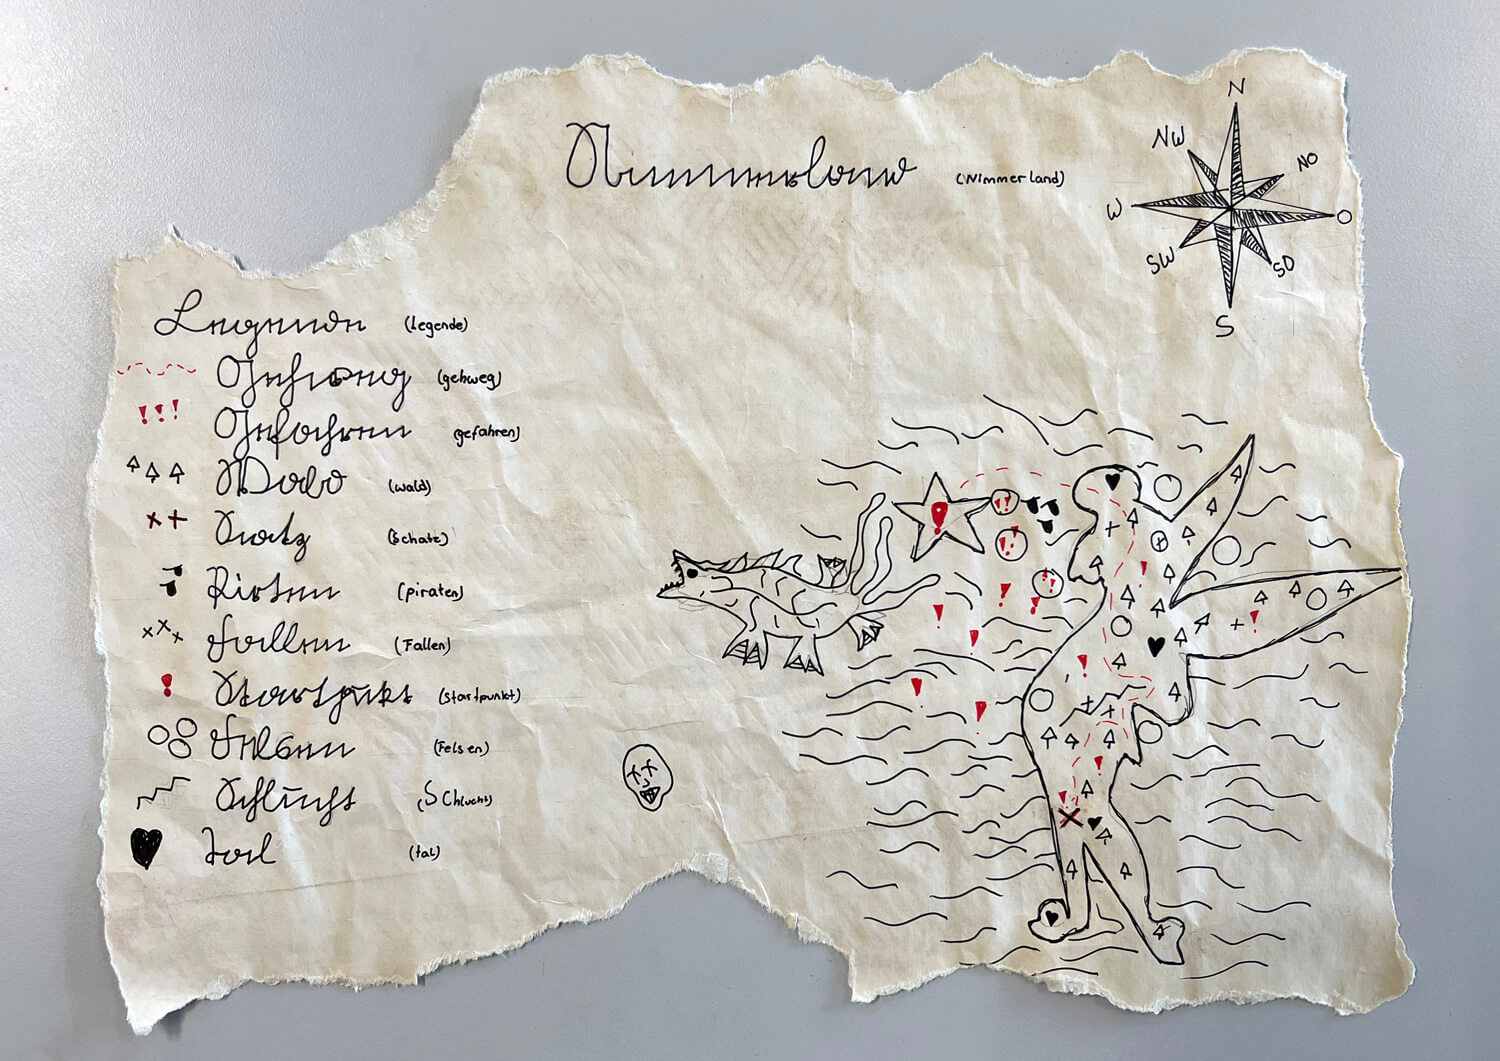 Nimmerland (Nimmerland)
N
NW
NO
W
O
SW
SO
S
Legende (Legende)
Gehweg (gehweg)
Gefahren (gefahren)
Wald (wald)
Schatz (Schatz)
Piraten (piraten)
Fallen (Fallen)
Startpunkt (Startpunkt)
Felsen (Felsen)
Schlucht (Schlucht)
Tal (tal)